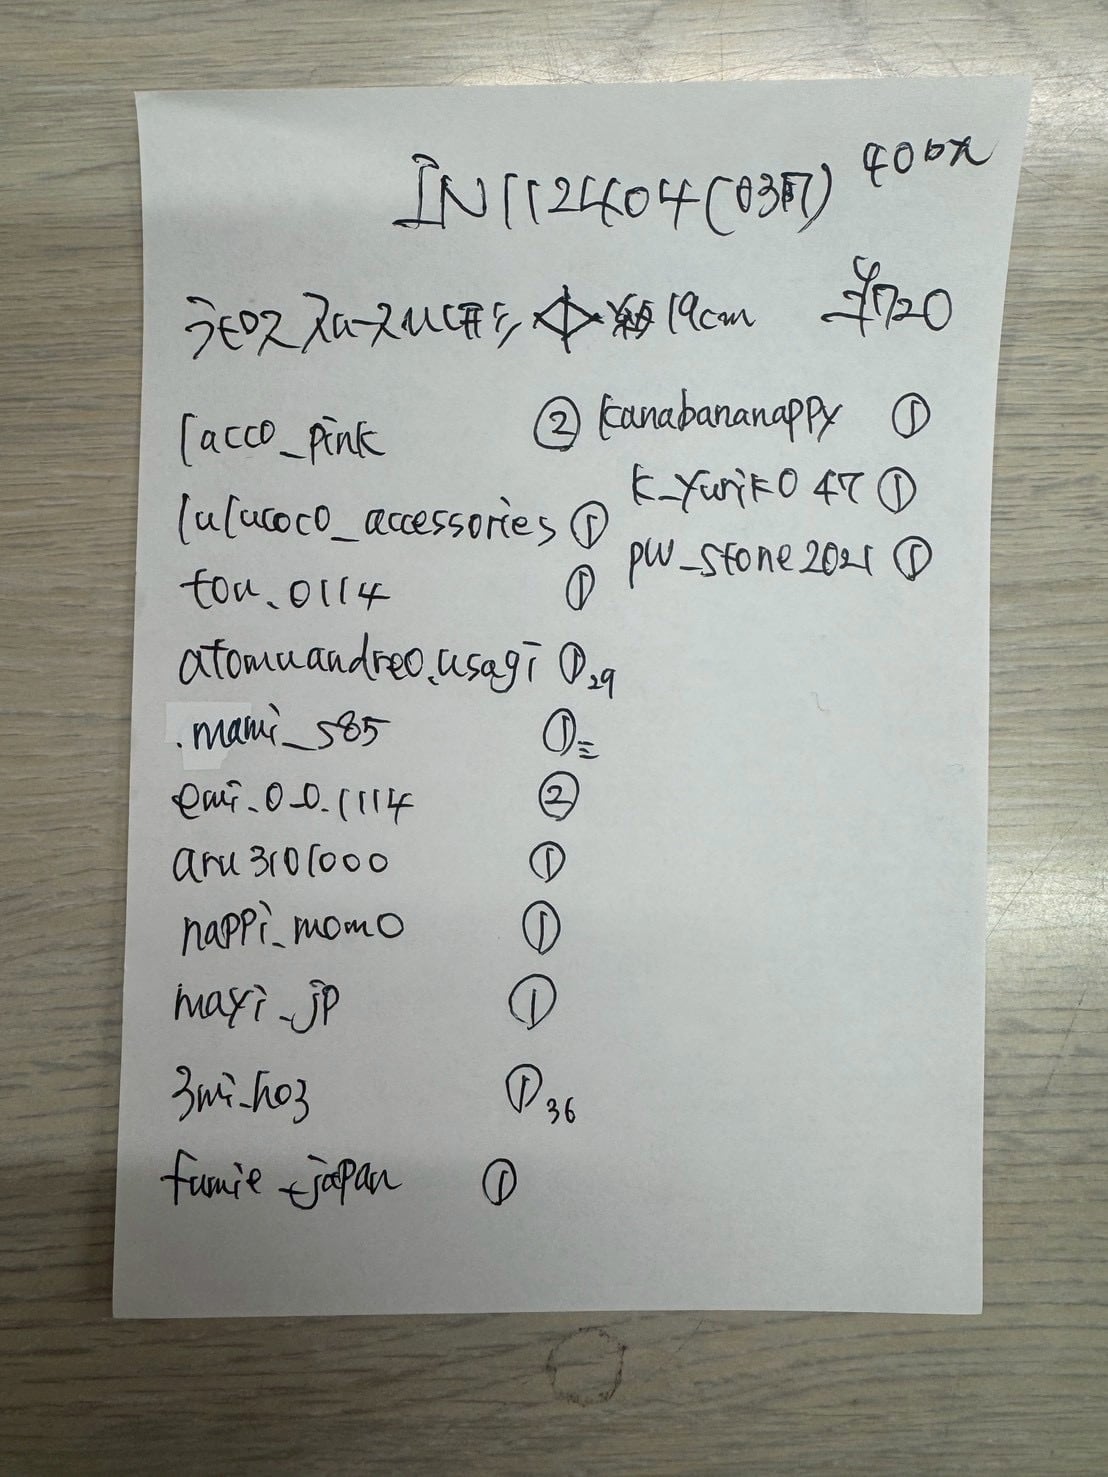 IN112404(03月) 400x
19cm ¥720
lacco_pink ②
lulucoco_accessories ①
tou.0114 ①
atomuandreo.usagi ①29
.mami_s85 ①三
emi.0_0.1114 ②
aru3101000 ①
nappi_momo ①
mayi_jp ①
3mi_ho3 ①36
fumie_japan ①
kanabananappy ①
k_yuriko47 ①
pw_stone2021 ①